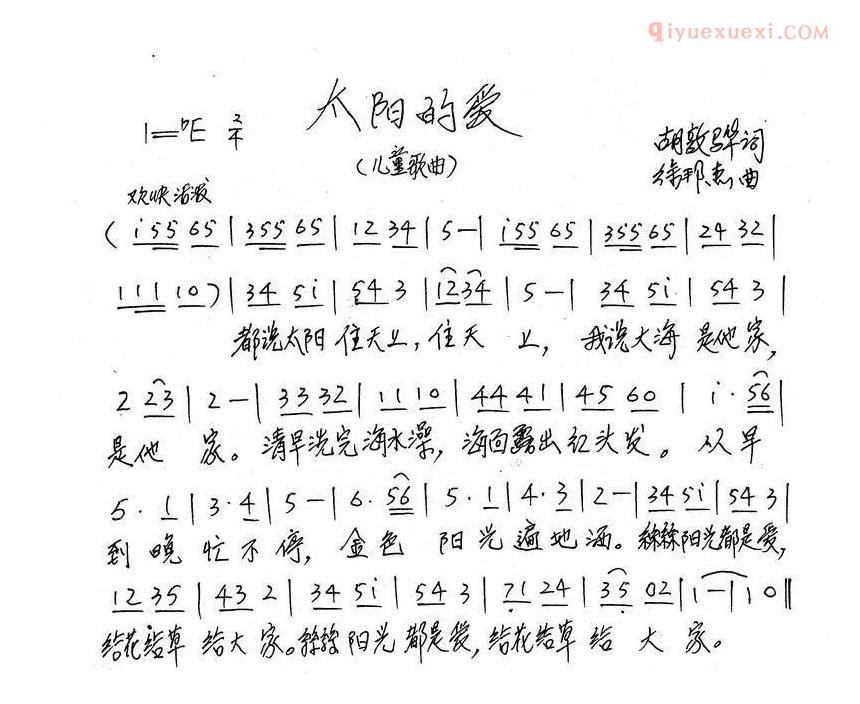 qiyuexuexi.COM
太阳的爱
1=♭E 2/4
（儿童歌曲）
胡敦骅词
徐邦杰曲
欢快活泼
( i55 65 | 355 65 | 12 34 | 5 - | i55 65 | 355 65 | 24 32 |
111 10 ) | 34 5i | 54 3 | 1234 | 5 - | 34 5i | 54 3 |
都说太阳住天上，住天 上， 我说大海 是他家，
2 23 | 2 - | 33 32 | 11 10 | 44 41 | 45 60 | i · 56 |
是他 家。清早洗完海水澡，海面露出红头发。从早
5 · 1 | 3 · 4 | 5 - | 6 · 56 | 5 · 1 | 4 · 3 | 2 - | 34 5i | 54 3 |
到 晚 忙不停， 金色 阳光遍地洒。丝丝阳光都是爱，
12 35 | 43 2 | 34 5i | 54 3 | 71 24 | 35 02 | 1 - | 1 0 ‖
给花给草 给大 家。丝丝阳光 都是爱，给花给草 给 大 家。